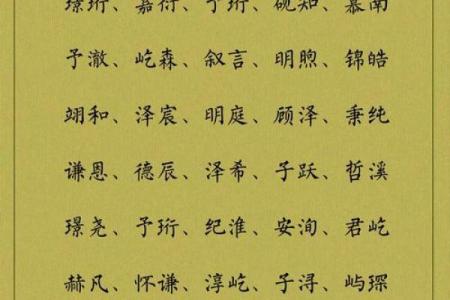 璟珩、嘉衍、予珩、砚知、慕南
予澈、屹森、叙言、明煦、锦皓
翊和、泽宸、明庭、顾泽、秉纯
谦恩、德辰、泽希、子跃、哲溪
璟尧、予珩、纪淮、安洵、君屹
赫凡、怀谦、淳屹、子浔、屿琛